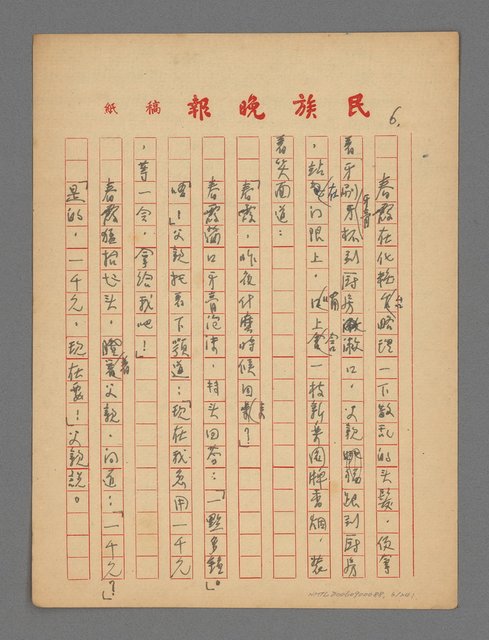 民族晚報 稿紙
6.
春霞在化粧台略理一下散亂的頭髮,便拿
着牙刷牙膏牙杯到厨房漱口。父親跟到厨房
,站在門限上,嘴上含一枝新樂園牌香烟,裝
着笑面道:
「春霞,昨夜什麼時候回來?」
春霞滿口牙膏泡沫,轉頭回答:「一點多鐘」。
「唔!」父親托着下顎道:「現在我急用一千元
,等一會,拿給我吧!」
春霞猛抬起頭,瞪着父親,問道:「一千元?」
「是的,一千元,現在要!」父親說。
NMTL20060900088, 6/201